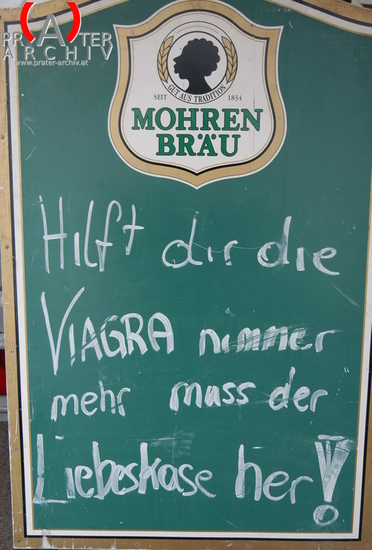 PRATER
ARCHIV
www.prater-archiv.at
GUT AUS TRADITION
SEIT 1834
MOHREN
BRÄU
Hilft dir die
VIAGRA nimmer
mehr muss der
Liebeskäse her!